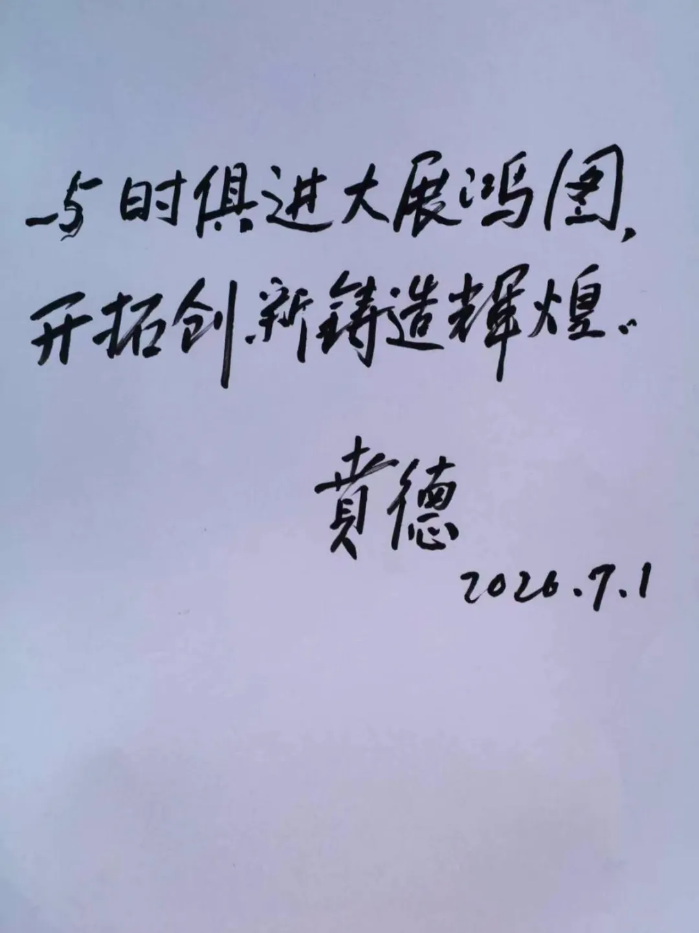 与时俱进大展鸿图,
开拓创新铸造辉煌..
贲德
2026.7.1